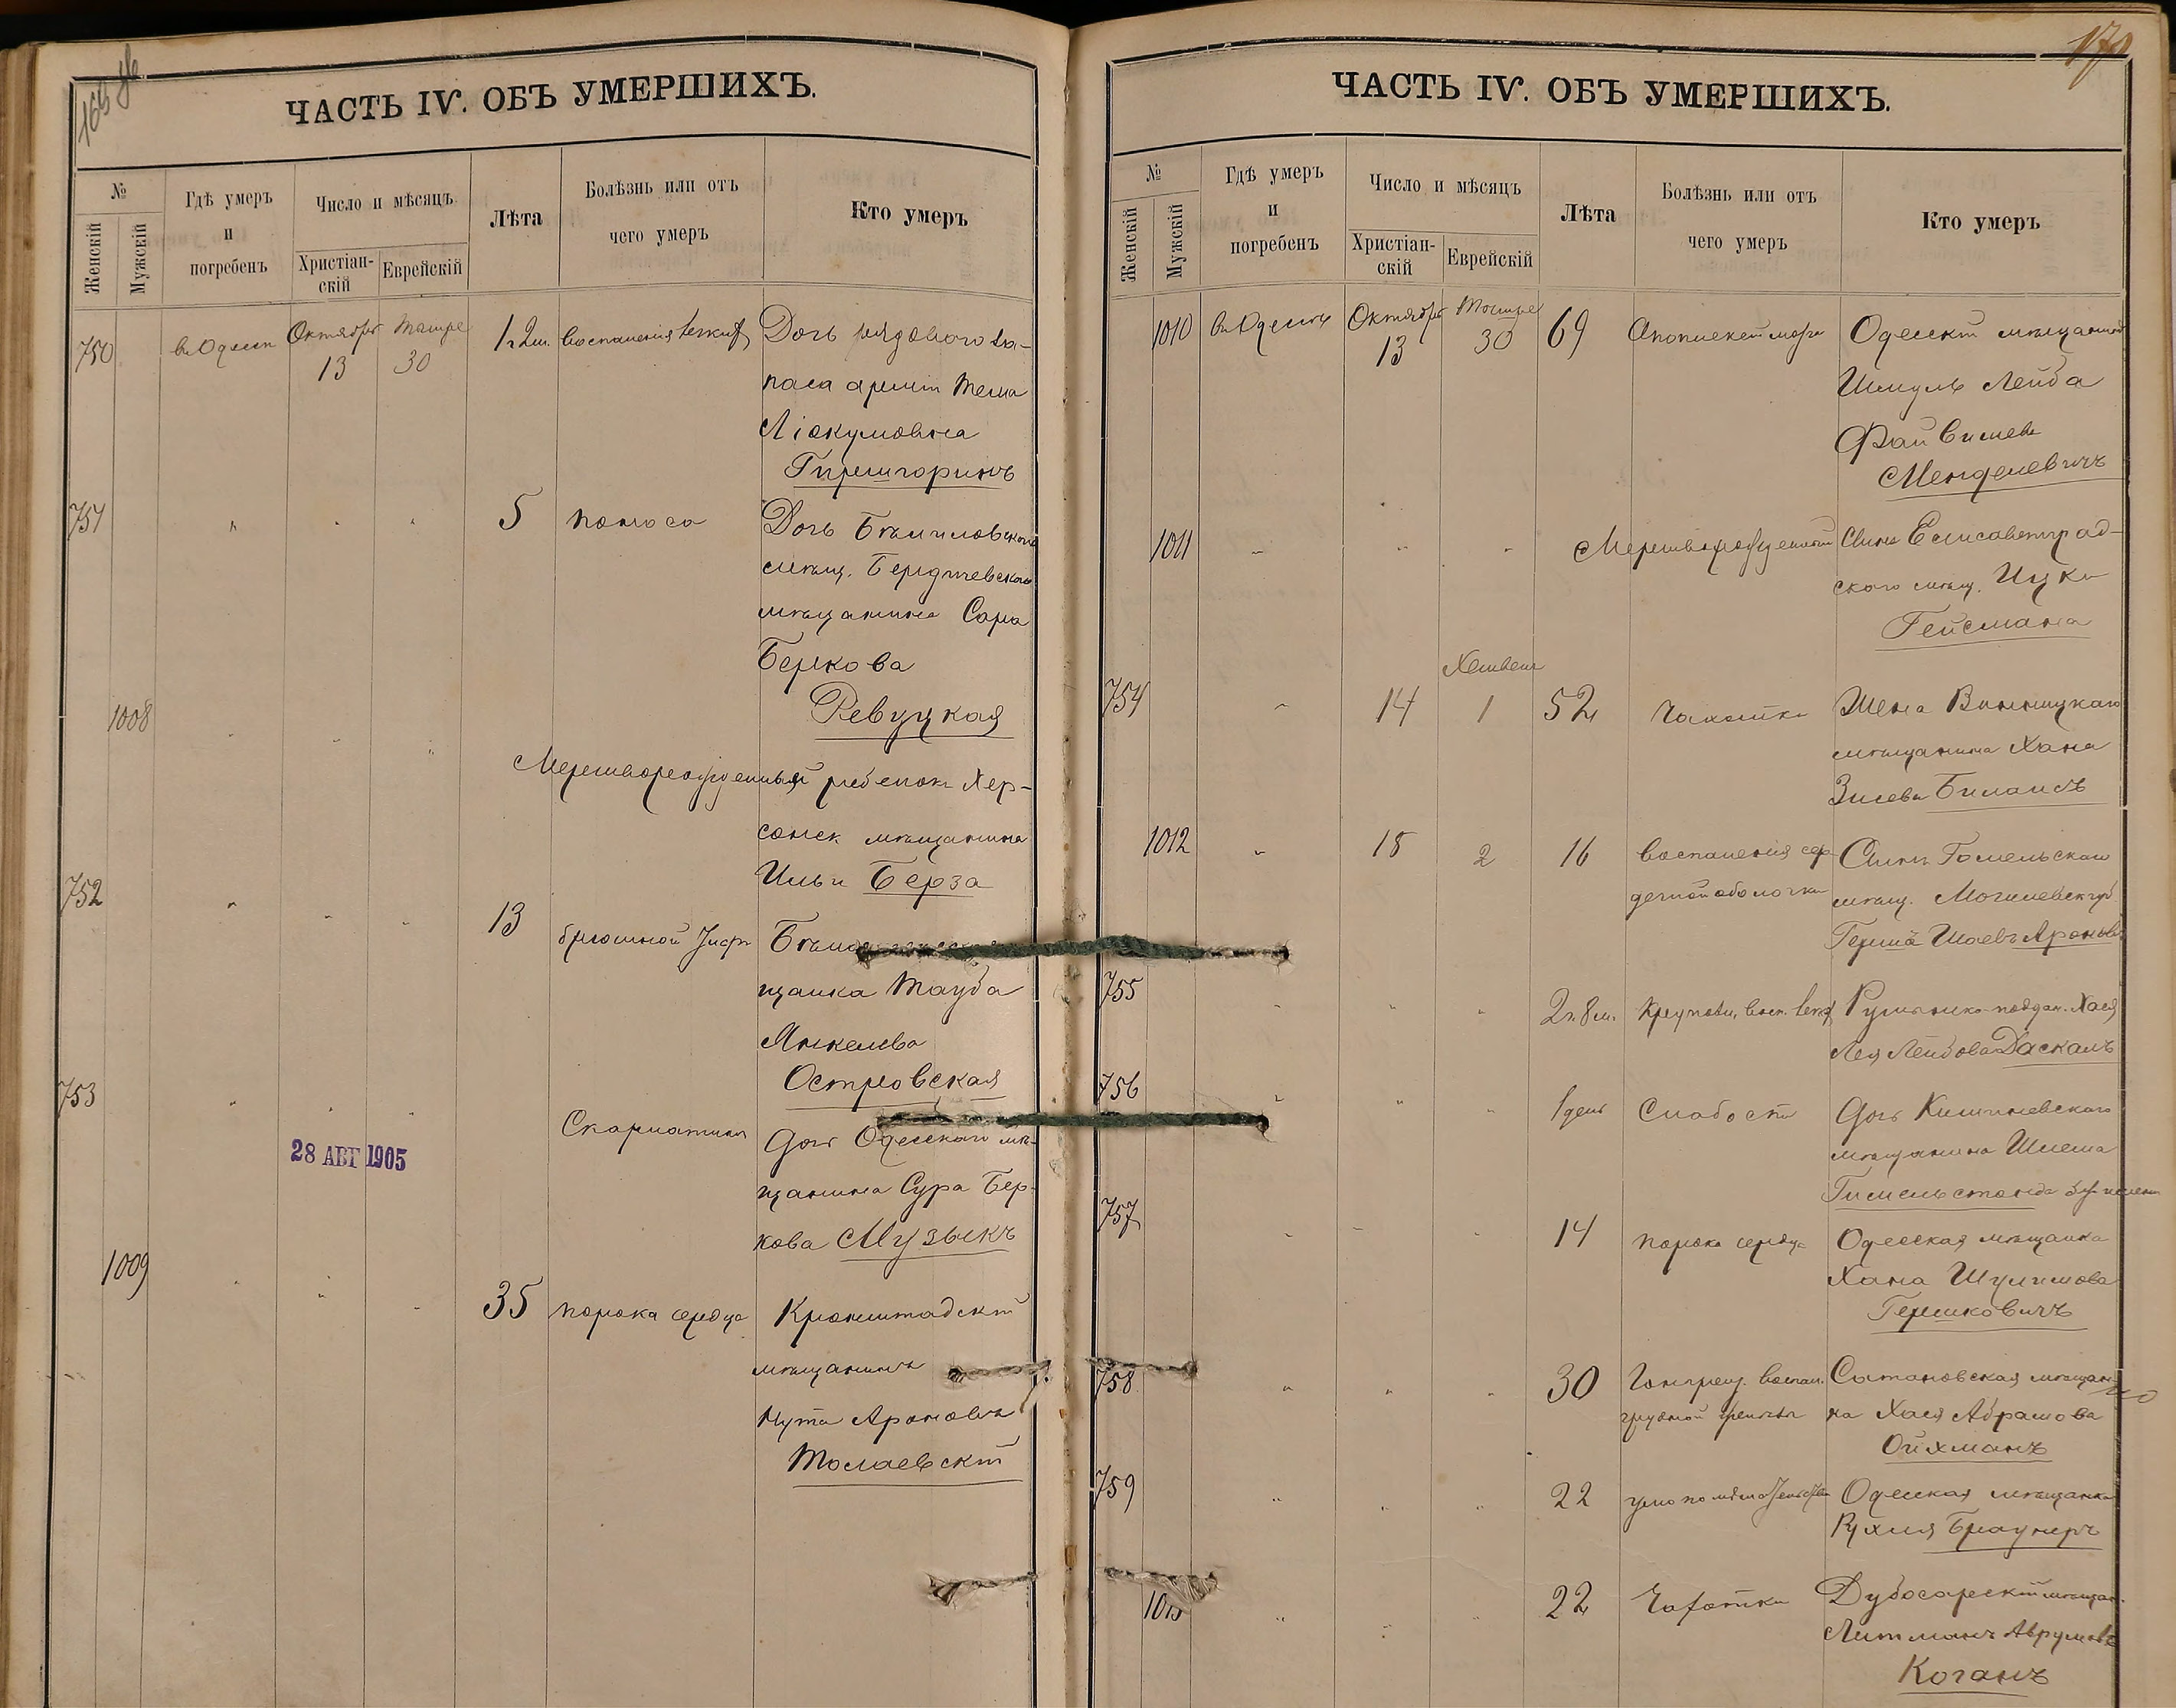 165 об
ЧАСТЬ IV. ОБЪ УМЕРШИХЪ.
№
Женскій
Мужскій
Гдѣ умеръ
и
погребенъ
Число и мѣсяцъ
Христіан-
скій
Еврейскій
Лѣта
Болѣзнь или отъ
чего умеръ
Кто умеръ
750 въ Одессѣ Октября 13 Тишре 30 1г. 2м. воспаленія легких
Дочь рядового
паса армiи
Гиршгоринъ
751 " " " 5 поноса
Дочь
мѣщ. Бердичевскаго
мѣщанина Сара
Беркова
Ревуцкая
1008 " " "
Мертворожденный ребенокъ Хер-
сонск мѣщанина
Ильи Берза
752 " " " 13 брюшной тифъ
щанка Тауба
Янкелева
Островская
753 " " " Скарлатина
Дочь Одесскаго мѣ-
щанина Сура Бер-
кова Музыкъ
28 АВГ 1905
1009 " " " 35 порока сердца
Кронштадскій
мѣщанинъ
Нута Ароновъ
Толаевскій
170
ЧАСТЬ IV. ОБЪ УМЕРШИХЪ.
№
Женскій
Мужскій
Гдѣ умеръ
и
погребенъ
Число и мѣсяцъ
Христіан-
скій
Еврейскій
Лѣта
Болѣзнь или отъ
чего умеръ
Кто умеръ
1010 въ Одессѣ Октября 13 Тишре 30 69
Одесскій мѣщанинъ
Шмуль Лейба
Файвишевъ
Менделевичъ
1011 " " " Мертворожденный Сынъ Елисаветград-
скаго мѣщ. Ицки
Гейсмана
Хешвенъ
754 " 14 1 52 Чахотки Жена Винницкаго
мѣщанина Хана
Зисева Билансъ
1012 " 18 2 16 воспаленія сер- Сынъ Гомельскаго
дечной оболочки мѣщ. Могилевск губ
Герша Шаевъ Ароновъ
755 " " " 2г. 8м. Крупозн. восп. легк Румынско-поддан. Хася
Лея Лейбова Даскалъ
756 " " " 1 день Слабости Дочь Кишиневскаго
мѣщанина Шлема
757 " " " 14 порока сердца Одесская мѣщанка
Хана Шулимова
Гершковичъ
758 " " " 30 Гангрен. воспал. Сатановская мѣщан-
грудной ка Хася Абрамова
Ойхманъ
759 " " " 22 Одесская мѣщанка
Рухля Браунеръ
1013 " " " 22 Чахотки Дубосарскій мѣщан.
Литманъ Аврумовъ
Коганъ